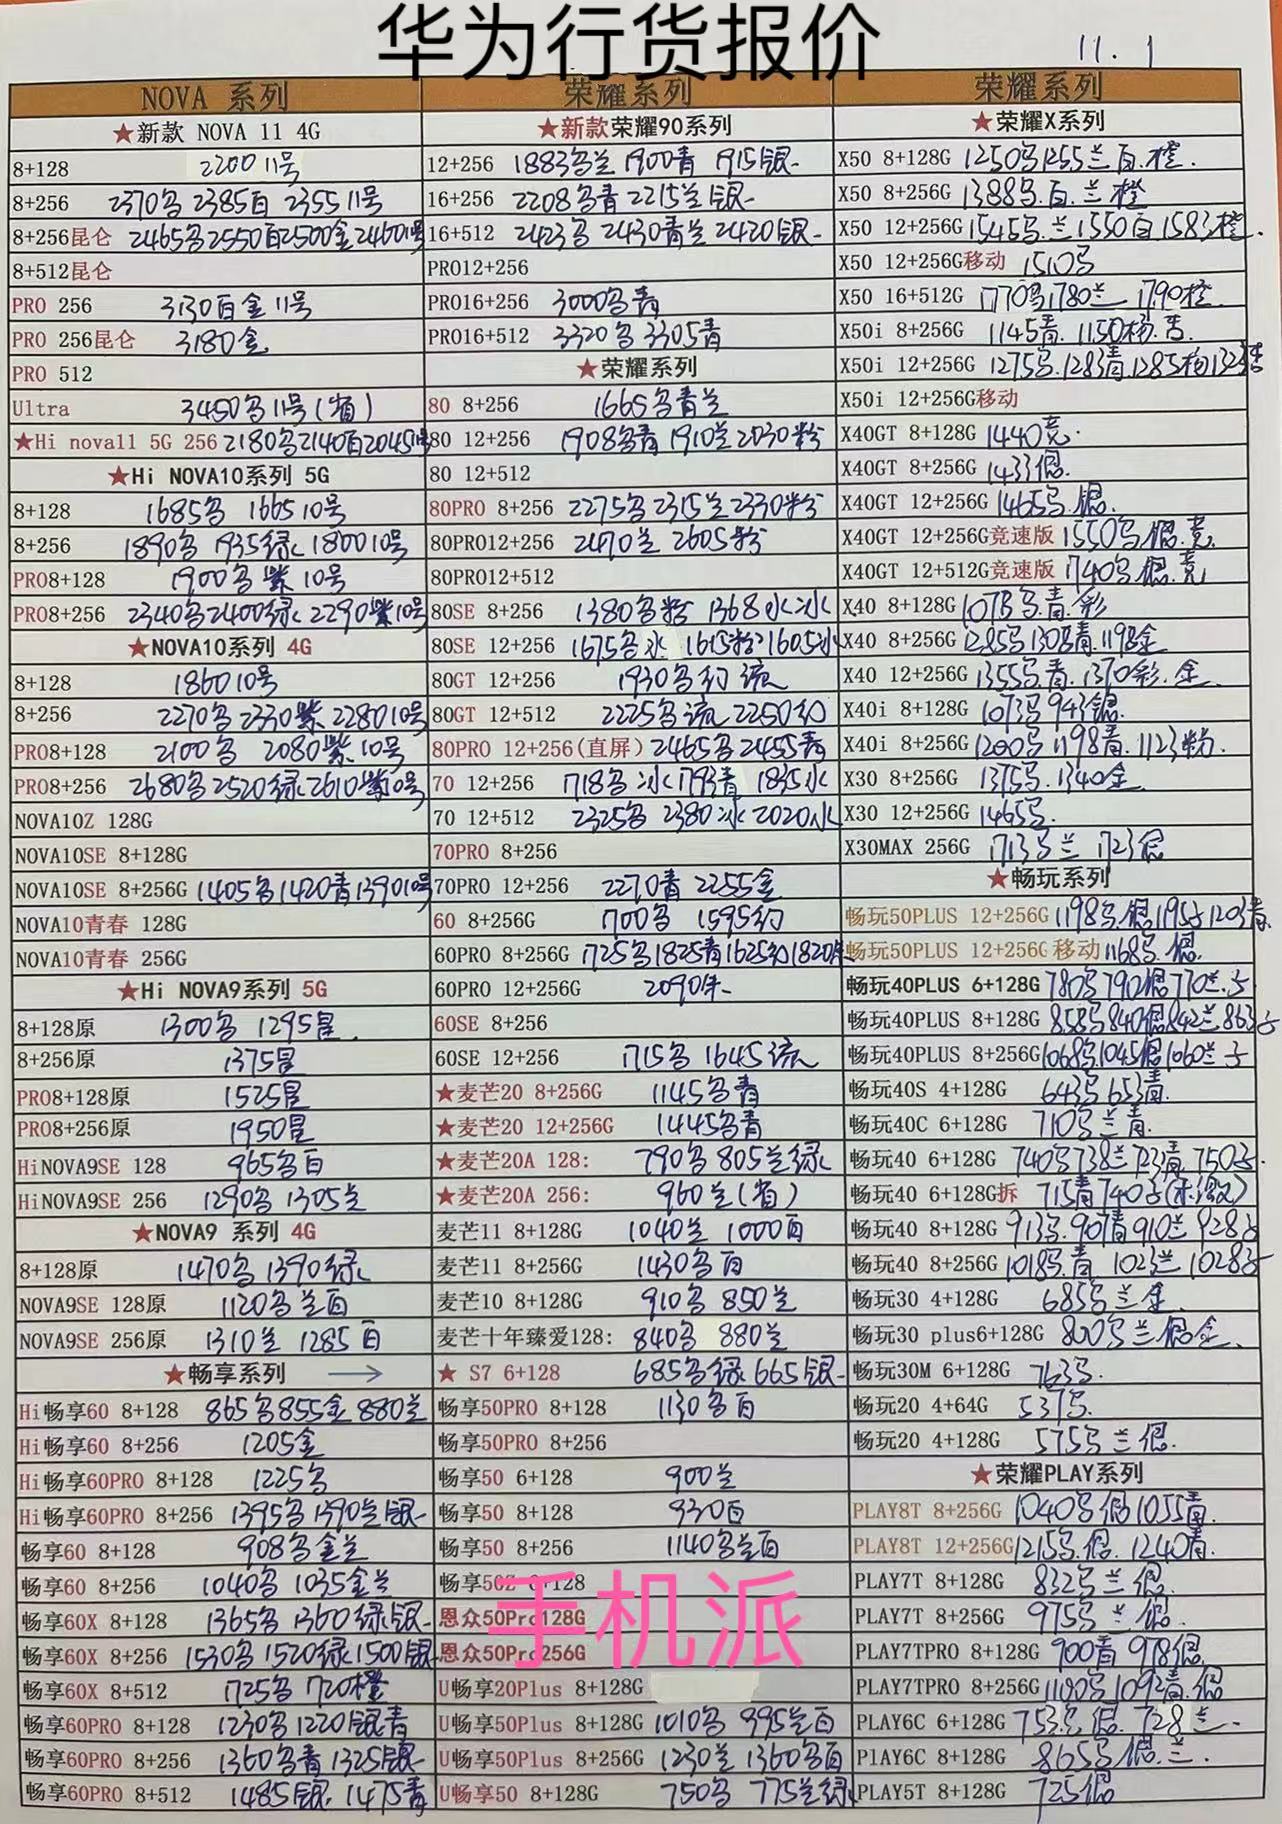 华为行货报价
11.1
NOVA 系列
★新款 NOVA 11 4G
8+128 2200 11号
8+256 2370乌 2385百 2355 11号
8+256昆仑 2465乌 2550百 2500金 2460 11号
8+512昆仑
PRO 256 3130百金 11号
PRO 256昆仑 3180金
PRO 512
Ultra 3450乌 11号(省)
★Hi nova11 5G 256 2180乌 2140百 2045
★Hi NOVA10系列 5G
8+128 1685乌 1665 10号
8+256 1890乌 1935绿 1800 10号
PRO8+128 1900乌紫 10号
PRO8+256 2340乌 2400绿 2290紫 10号
★NOVA10系列 4G
8+128 1860 10号
8+256 2270乌 2330紫 2280 10号
PRO8+128 2100乌 2080紫.10号
PRO8+256 2680乌 2520绿 2610紫 10号
NOVA10Z 128G
NOVA10SE 8+128G
NOVA10SE 8+256G 1405乌 1420青 1390 10号
NOVA10青春 128G
NOVA10青春 256G
★Hi NOVA9系列 5G
8+128原 1300乌 1295星
8+256原 1375星
PRO8+128原 1525星
PRO8+256原 1950星
HiNOVA9SE 128 965乌百
HiNOVA9SE 256 1290乌 1305兰
★NOVA9 系列 4G
8+128原 1470乌 1390绿
NOVA9SE 128原 1120乌兰百
NOVA9SE 256原 1310兰 1285百
★畅享系列 →
Hi畅享60 8+128 865乌 855金 880兰
Hi畅享60 8+256 1205金
Hi畅享60PRO 8+128 1225乌
Hi畅享60PRO 8+256 1395乌 1390兰银
畅享60 8+128 908乌金兰
畅享60 8+256 1040乌 1035金兰
畅享60X 8+128 1365乌 1360绿银
畅享60X 8+256 1530乌 1520绿 1500银
畅享60X 8+512 1725乌 1720橙
畅享60PRO 8+128 1230乌 1220银青
畅享60PRO 8+256 1360乌青 1325银
畅享60PRO 8+512 1485银 1475青
荣耀系列
★新款荣耀90系列
12+256 1883乌兰 1900青 1915银
16+256 2208乌青 2215兰银
16+512 2423乌 2430青兰 2420银
PRO12+256
PRO16+256 3000乌青
PRO16+512 3320乌 3305青
★荣耀系列
80 8+256 1665乌青兰
80 12+256 1908乌青 1910兰 2030粉
80 12+512
80PRO 8+256 2275乌 2315兰 2330粉
80PRO12+256 2470兰 2605粉
80PRO12+512
80SE 8+256 1380乌粉 1368水冰
80SE 12+256 1675乌冰 1615粉 1605水
80GT 12+256 1930乌幻流
80GT 12+512 2225乌流 2250幻
80PRO 12+256(直屏) 2465乌 2455青
70 12+256 1718乌冰 1793青 1835水
70 12+512 2325乌 2380冰 2020水
70PRO 8+256
70PRO 12+256 2270青 2255金
60 8+256G 1700乌 1595幻
60PRO 8+256G 1725乌 1825青 1625幻 1820
60PRO 12+256G 2090
60SE 8+256
60SE 12+256 1715乌 1645流
★麦芒20 8+256G 1145乌青
★麦芒20 12+256G 1445乌青
★麦芒20A 128: 790乌 805兰绿
★麦芒20A 256: 960兰(省)
麦芒11 8+128G 1040兰 1000百
麦芒11 8+256G 1430乌百
麦芒10 8+128G 910乌 850兰
麦芒十年臻爱128: 840乌 880兰
★ S7 6+128 685乌绿 665银
畅享50PRO 8+128 1130乌百
畅享50PRO 8+256
畅享50 6+128 900兰
畅享50 8+128 930百
畅享50 8+256 1140乌兰百
畅享50Z 8+128
恩众50Pro128G
恩众50Pro256G
手机派
U畅享20Plus 8+128G
U畅享50Plus 8+128G 1010乌 995兰百
U畅享50Plus 8+256G 1230兰 1360乌百
U畅享50 8+128G 750乌 775兰绿
荣耀系列
★荣耀X系列
X50 8+128G 1250乌 1255兰百.橙.
X50 8+256G 1388乌.百.兰橙
X50 12+256G 1545乌.兰 1550百 1583橙.
X50 12+256G移动 1510乌
X50 16+512G 1770乌 1780兰 1790橙.
X50i 8+256G 1145青. 1150杨.杏
X50i 12+256G 1275乌. 1283青
X50i 12+256G移动
X40GT 8+128G 1440竞.
X40GT 8+256G 1433银.
X40GT 12+256G 1465乌.银.
X40GT 12+256G竞速版 1550乌银.竞.
X40GT 12+512G竞速版 1740乌银.竞
X40 8+128G 1078乌.青.彩
X40 8+256G 1285乌 1308青. 1198金
X40 12+256G 1355乌青. 1370彩.金.
X40i 8+128G 1073乌 943银.
X40i 8+256G 1200乌 1198青. 1123粉.
X30 8+256G 1375乌. 1340金.
X30 12+256G 1465乌.
X30MAX 256G 1713乌兰 1723银
★畅玩系列
畅玩50PLUS 12+256G 1198乌.银 1195 1203青.
畅玩50PLUS 12+256G 移动 1168乌.银.
畅玩40PLUS 6+128G 780乌 790银 770兰.
畅玩40PLUS 8+128G 858乌 840银 842兰 863
畅玩40PLUS 8+256G 1068乌 1045银 1060兰
畅玩40S 4+128G 643乌 653青.
畅玩40C 6+128G 710乌兰青.
畅玩40 6+128G 740乌 738兰 723青 750
畅玩40 6+128G拆 715青 740
畅玩40 8+128G 913乌. 907青 910兰 928
畅玩40 8+256G 1018乌.青 1023兰 1028
畅玩30 4+128G 685乌兰金.
畅玩30 plus6+128G 800乌兰银金.
畅玩30M 6+128G 763乌.
畅玩20 4+64G 537乌.
畅玩20 4+128G 575乌兰银.
★荣耀PLAY系列
PLAY8T 8+256G 1040乌银 1055青.
PLAY8T 12+256G 1215乌.银. 1240青.
PLAY7T 8+128G 832乌兰银.
PLAY7T 8+256G 975乌兰银.
PLAY7TPRO 8+128G 900青 978银.
PLAY7TPRO 8+256G 1100乌 1092青.银
PLAY6C 6+128G 753乌银. 728兰.
PlAY6C 8+128G 865乌银.兰.
PLAY5T 8+128G 725银